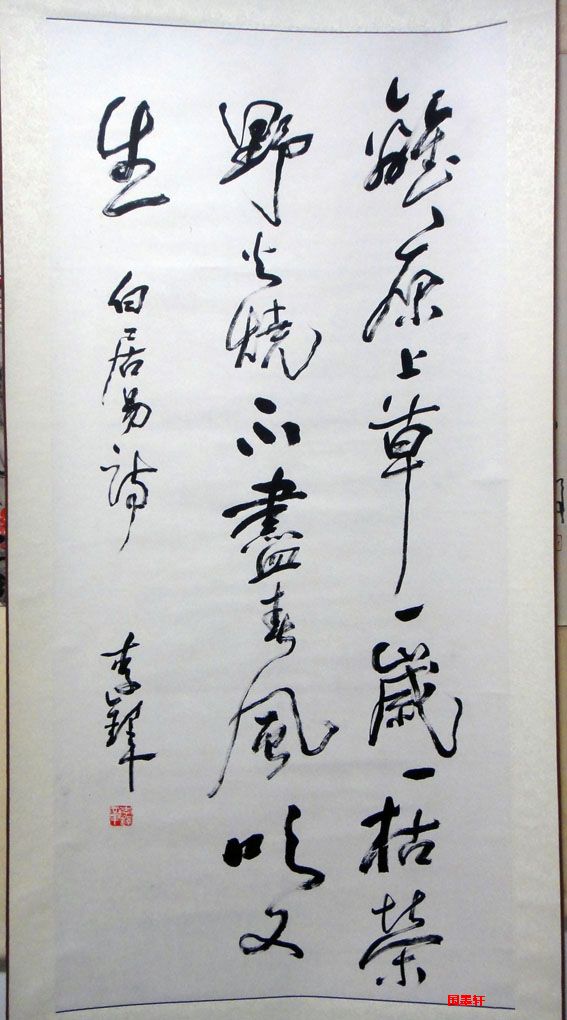 離々原上草一歲一枯榮
野火燒不盡春風吹又
生
白居易詩
李鐸
国美轩